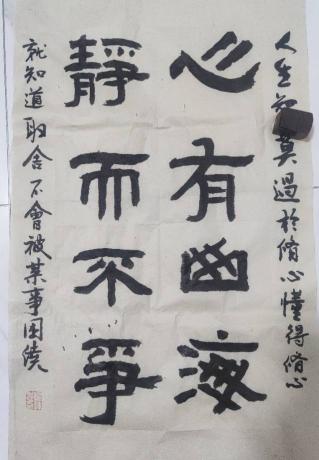 人生莫過於脩心懂得脩心
心有幽海
靜而不爭
就知道取舍不會被某事困